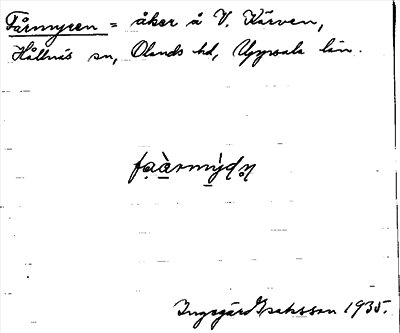 Fårmyren = åker å V. Kärven,
Hållnäs sn, Olands hd, Uppsala län.
Ingegärd Isaksson 1935.